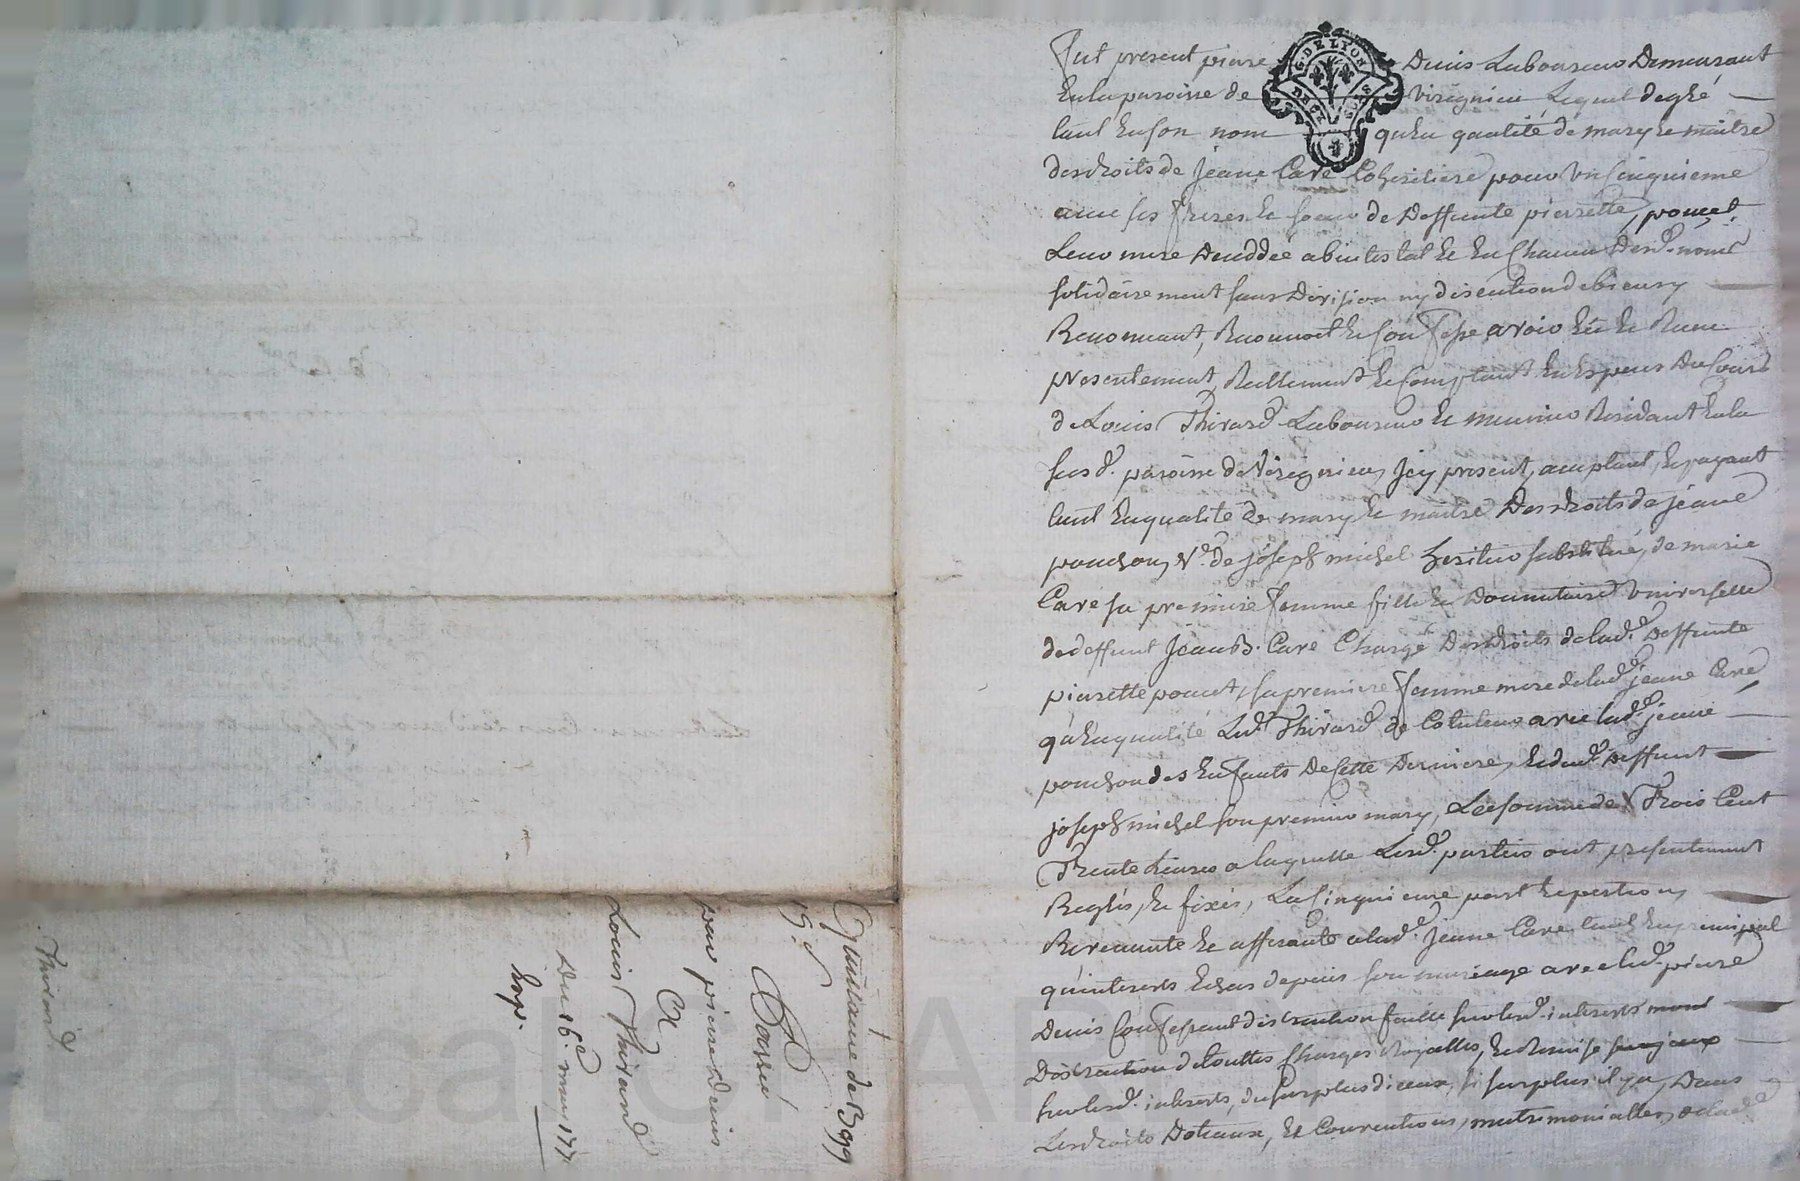 Fut present pierre Denis Laboureur Demeurant
En la paroisse de Virignieu Lequel degré
tant En son nom qu'En qualité de mary Et maitre
des droits de jeane Caré Coheritiere pour Un Cinquieme
avec ses freres Et soeur de Deffunte pierrette poncet
Leur mere Deceddée abintestat Et En Chacun Desd. noms
solidairement sans Division ny discution de biens y
Renonceant, Reconnoit Et Confesse avoir Eu Et Receu
presentement, Reellement Et Comptant En Especes Du Cours
de Louis Thirard Laboureur Et meunier Residant En la
susd. paroisse de Virignieu, Icy present, acceptant, Et payant
tant En qualité de mary Et maitre Des droits de jeane
ponchon Ve. de joseph michel heritier substitué, de marie
Caré sa premiere femme fille Et Donnataire Universelle
de deffunt Jean B. Caré Chargé Des droits de lad. Deffunte
pierrette poncet, sa premiere femme mere de lad. jeane Caré
qu'En qualité Led. Thirard de Cotuteur avec lad. jeane
ponchon des Enfants De Cette Derniere, Et dud. Deffunt
joseph michel son premier mary, La somme de Trois Cent
Trente Livres a laquelle Lesd. parties ont presentement
Reglés, Et fixés, La Cinquieme part Et portion
Revenante Et afferante a lad. Jeane Caré tant En principal
qu'interets Echus depuis son mariage avec led. pierre
Denis Confessant distraction faitte sur lesd. interets
Distraction de touttes Charges Royalles, Et Remise
sur lesd. interets, du surplus d'iceux, si surplus il y a, Dans
Les droits Dotaux, Et Conventions, matrimonialles, de lad.
Quittance de 330
19 s.
Passé
par pierre Denis
a
Louis Thirard
Du 16e mars 177
Exp.
Thirard
Pascal CHAPEY